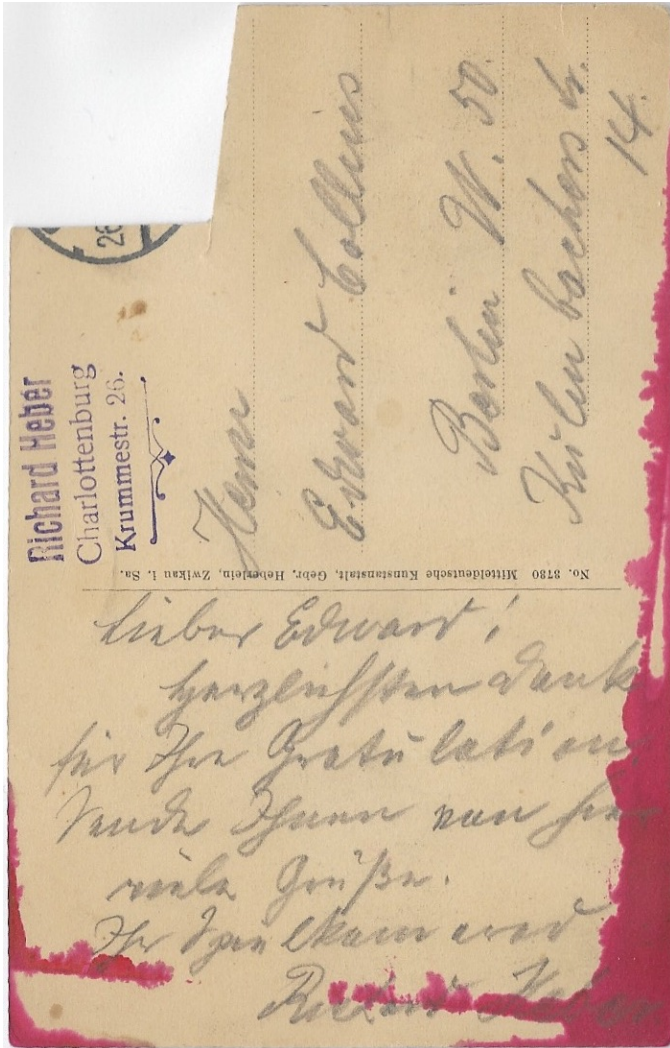 Richard Heber
Charlottenburg
Krummestr. 26.
26
Herrn
Edward Collins
Berlin W. 50.
Kulmbacherstr.
14.
No. 3730 Mitteldeutsche Kunstanstalt, Gebr. Heberlein, Zwikau i. Sa.
Lieber Edward!
Herzlichsten Dank
für Ihre Gratulation.
Sende Ihnen von hier
viele Grüße.
Ihr Spielkamerad
Richard Heber